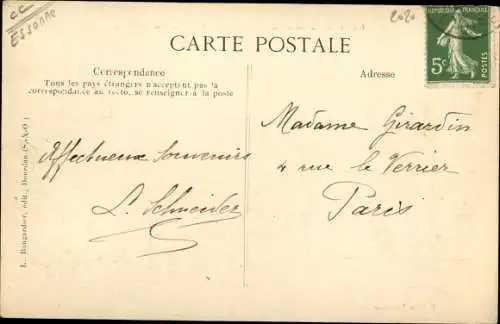 CC
ESSONNE
2020
CARTE POSTALE
RÉPUBLIQUE FRANÇAISE
5c
POSTES
Correspondance
Tous les pays étrangers n'acceptent pas la
correspondance au recto, se renseigner à la poste
Adresse
Affectueux Souvenirs
L. Schneider
Madame Girardin
4 rue le Verrier
Paris
L. Bougardier, édit., Dourdan (S.-&-O.)